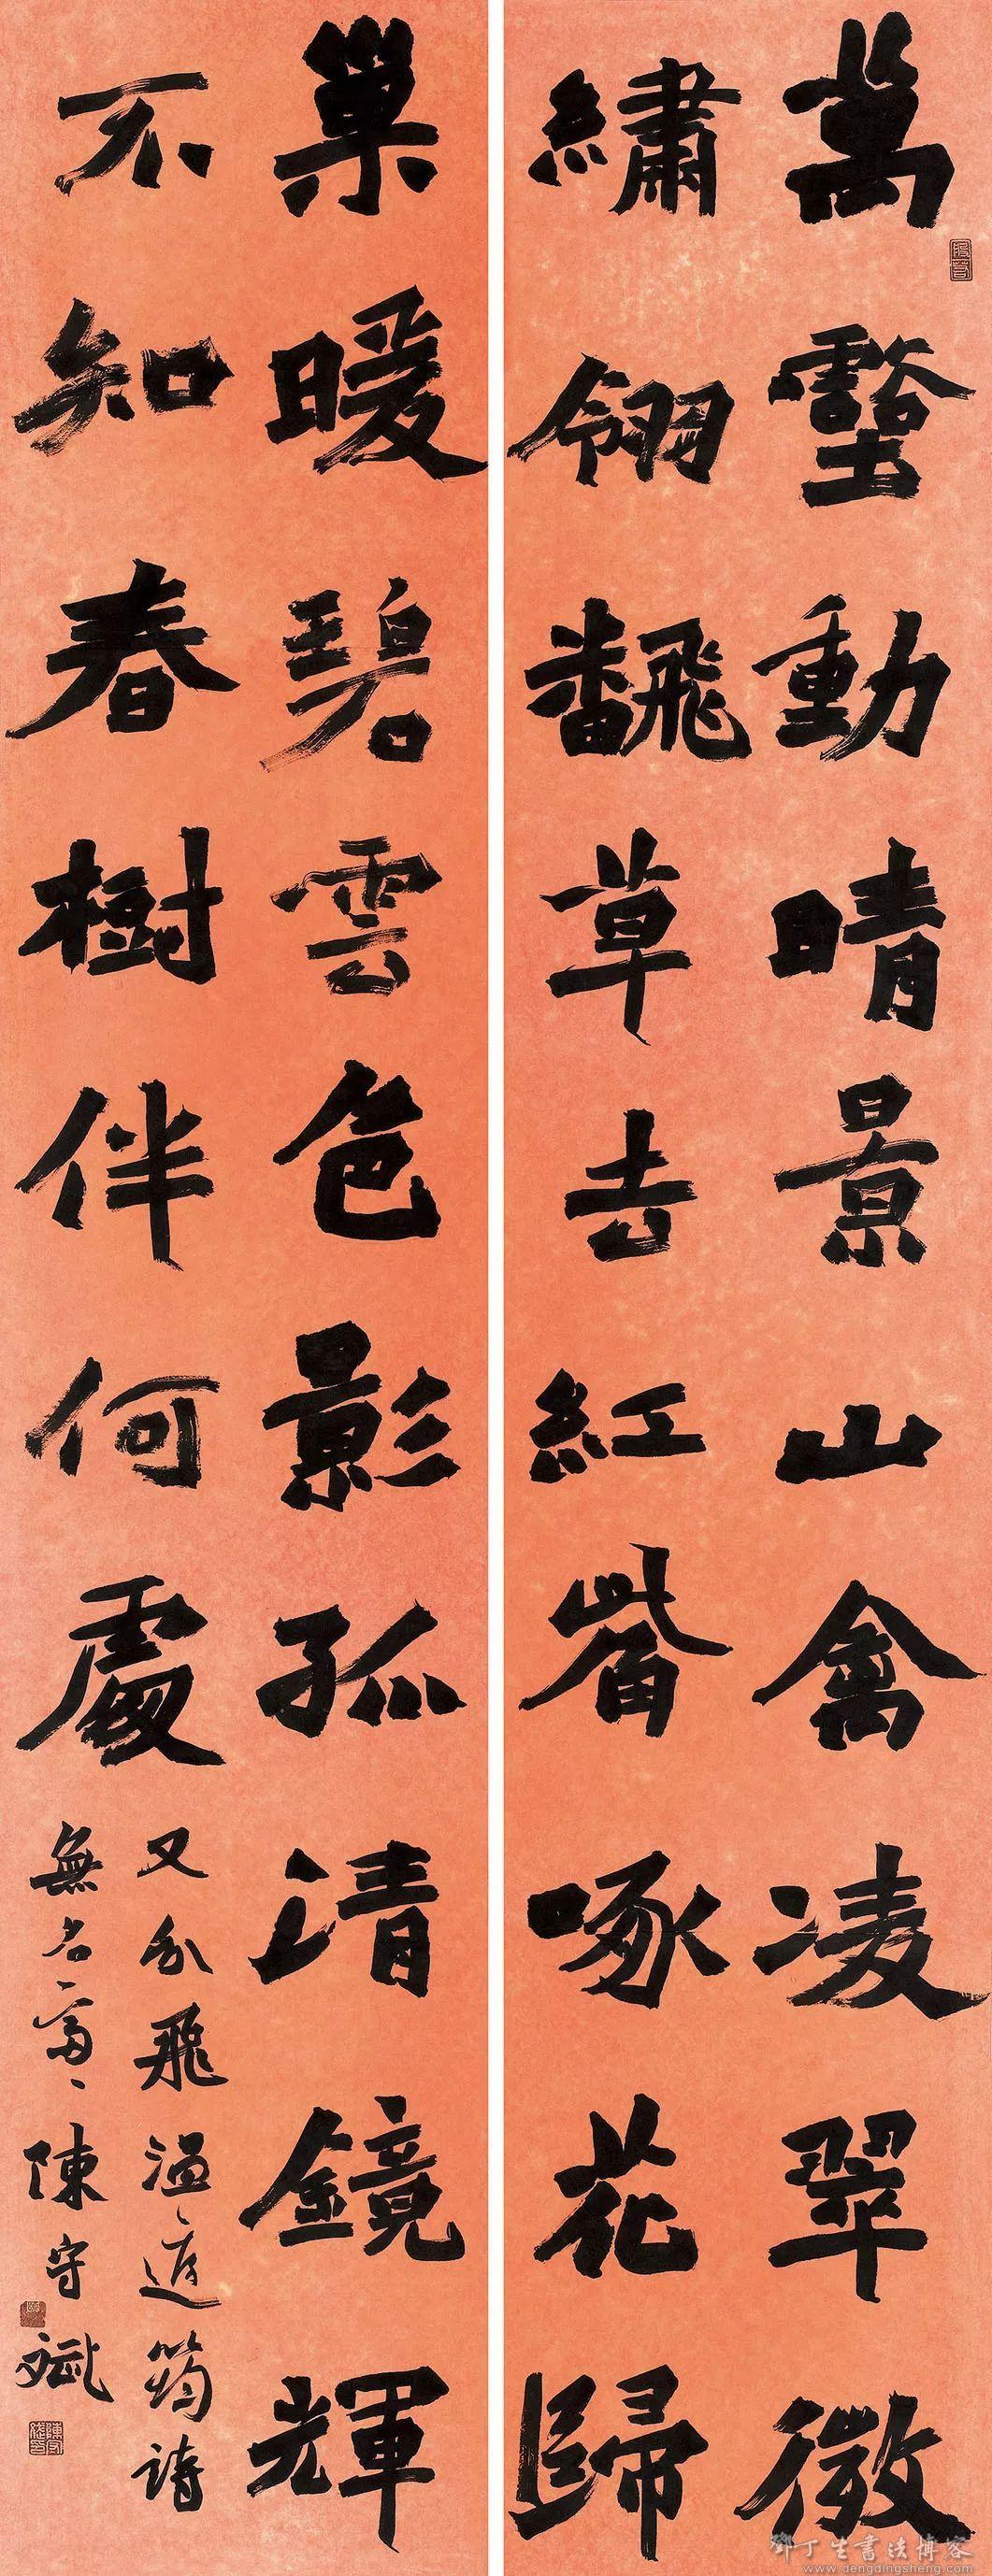 萬壑動晴景山禽凌翠微
繡翎飜草去紅觜啄花歸
巢暖碧雲色影孤清鏡輝
不知春樹伴何處
又分飛温庭筠詩
無名齋陳守斌
鄧丁生書法博客
www.dengdingsheng.com